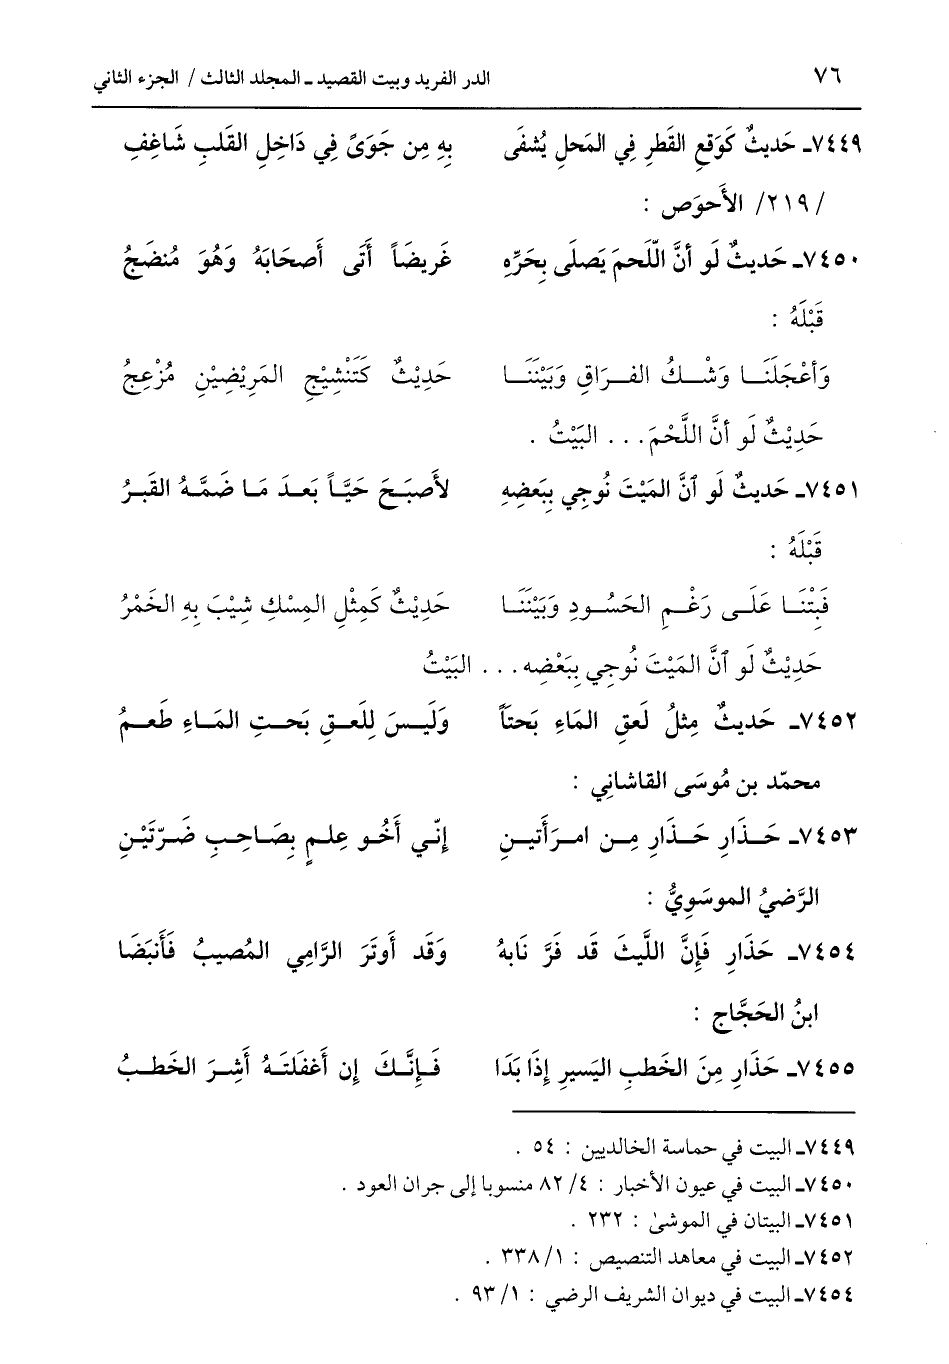 ٧٦ الدر الفريد وبيت القصيد ـ المجلد الثالث / الجزء الثاني
٧٤٤٩ـ حَديثٌ كَوَقعِ القَطرِ فِي المَحلِ يُشفَى بِهِ مِن جَوَىً فِي دَاخِلِ القَلبِ شَاغِفِ
/٢١٩/ الأَحوَص :
٧٤٥٠ـ حَديثٌ لَو أنَّ اللّحمَ يَصلَى بِحَرِّهِ غَريضَاً أَتَى أَصحَابَهُ وَهُوَ مُنضَجُ
قَبْلَهُ :
وَأعْجَلَنَا وَشْكُ الفراقِ وَبَيْنَنَا حَدِيْثٌ كَتَنْشِيْجِ المَرِيْضِيْنِ مُزْعِجُ
حَدِيْثٌ لَو أنَّ اللَّحْمَ . . . البَيْتُ .
٧٤٥١ـ حَديثٌ لَو ٱنَّ المَيْتَ نُوجِي بِبَعضِهِ لأَصبَحَ حَيَّاً بَعدَ مَا ضَمَّهُ القَبرُ
قَبْلَهُ :
فَبِتْنَا عَلَى رَغْمِ الحَسُودِ وَبَيْنَنَا حَدِيْثٌ كَمِثْلِ المِسْكِ شِيْبَ بِهِ الخَمْرُ
حَدِيْثٌ لَو ٱنَّ المَيْتَ نُوجِي بِبَعْضِهِ . . . البَيْتُ
٧٤٥٢ـ حَديثٌ مِثلُ لَعقِ المَاءِ بَحتَاً وَلَيسَ لِلَعقِ بَحتِ المَاءِ طَعمُ
محمّد بن مُوسَى القاشانِي :
٧٤٥٣ـ حَذَارِ حَذَارِ مِن امرَأَتينِ إنّي أَخُو عِلمٍ بِصَاحِبِ ضَرَّتَيْنِ
الرَّضيُ الموسَوِيُّ :
٧٤٥٤ـ حَذَارِ فَإِنَّ اللَّيثَ قَد فَرَّ نَابهُ وَقَد أَوتَرَ الرَّامِي المُصيبُ فَأَنبَضَا
ابنُ الحَجَّاج :
٧٤٥٥ـ حَذَارِ مِنَ الخَطبِ اليَسيرِ إِذَا بَدَا فَإِنَّكَ إِن أَغفَلتَهُ أَشِرَ الخَطبُ
٧٤٤٩ـ البيت في حماسة الخالديين : ٥٤ .
٧٤٥٠ـ البيت في عيون الأخبار : ٤/ ٨٢ منسوبا إلى جران العود .
٧٤٥١ـ البيتان في الموشىٰ : ٢٣٢ .
٧٤٥٢ـ البيت في معاهد التنصيص : ١/ ٣٣٨ .
٧٤٥٤ـ البيت في ديوان الشريف الرضي : ١/ ٩٣ .